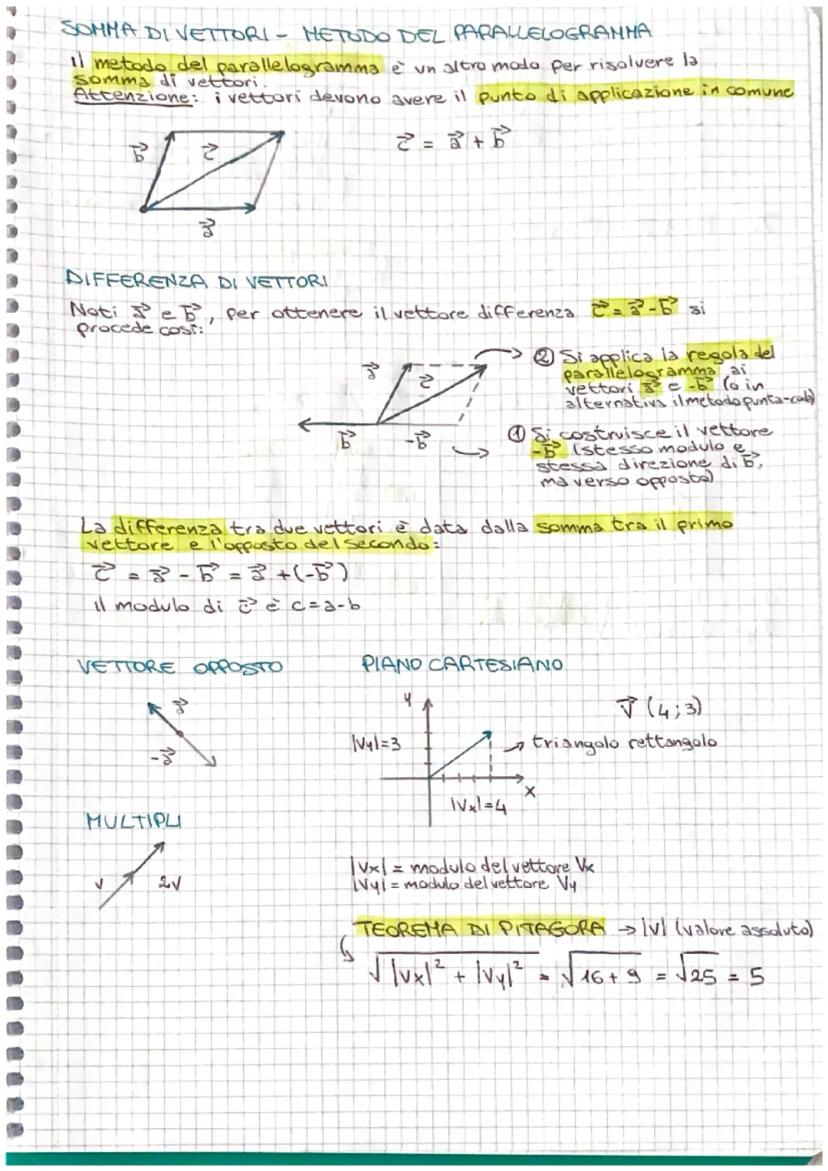 SOMMA DI VETTORI - METODO DEL PARALLELOGRAMMA
Il metodo del parallelogramma è un altro modo per risolvere la
somma di vettori.
Attenzione: i vettori devono avere il punto di applicazione in comune
b⃗ c⃗ c⃗ = a⃗ + b⃗
a⃗
DIFFERENZA DI VETTORI
Noti a⃗ e b⃗, per ottenere il vettore differenza c⃗ = a⃗ - b⃗ si
procede così:
a⃗ c⃗
② Si applica la regola del
parallelogramma ai
vettori a⃗ e -b⃗ (o in
alternativa il metodo punta-coda)
b⃗ -b⃗
① Si costruisce il vettore
-b⃗ (stesso modulo e
stessa direzione di b⃗,
ma verso opposto)
La differenza tra due vettori è data dalla somma tra il primo
vettore e l'opposto del secondo:
c⃗ = a⃗ - b⃗ = a⃗ + (-b⃗)
Il modulo di c⃗ è c=a-b
VETTORE OPPOSTO
a⃗
-a⃗
MULTIPLI
v 2v
PIANO CARTESIANO
y
v⃗ (4;3)
|Vy|=3
triangolo rettangolo
x
|Vx|=4
|Vx| = modulo del vettore Vx
|Vy| = modulo del vettore Vy
TEOREMA DI PITAGORA → |v| (valore assoluto)
√|Vx|² + |Vy|² = √16+9 = √25 = 5